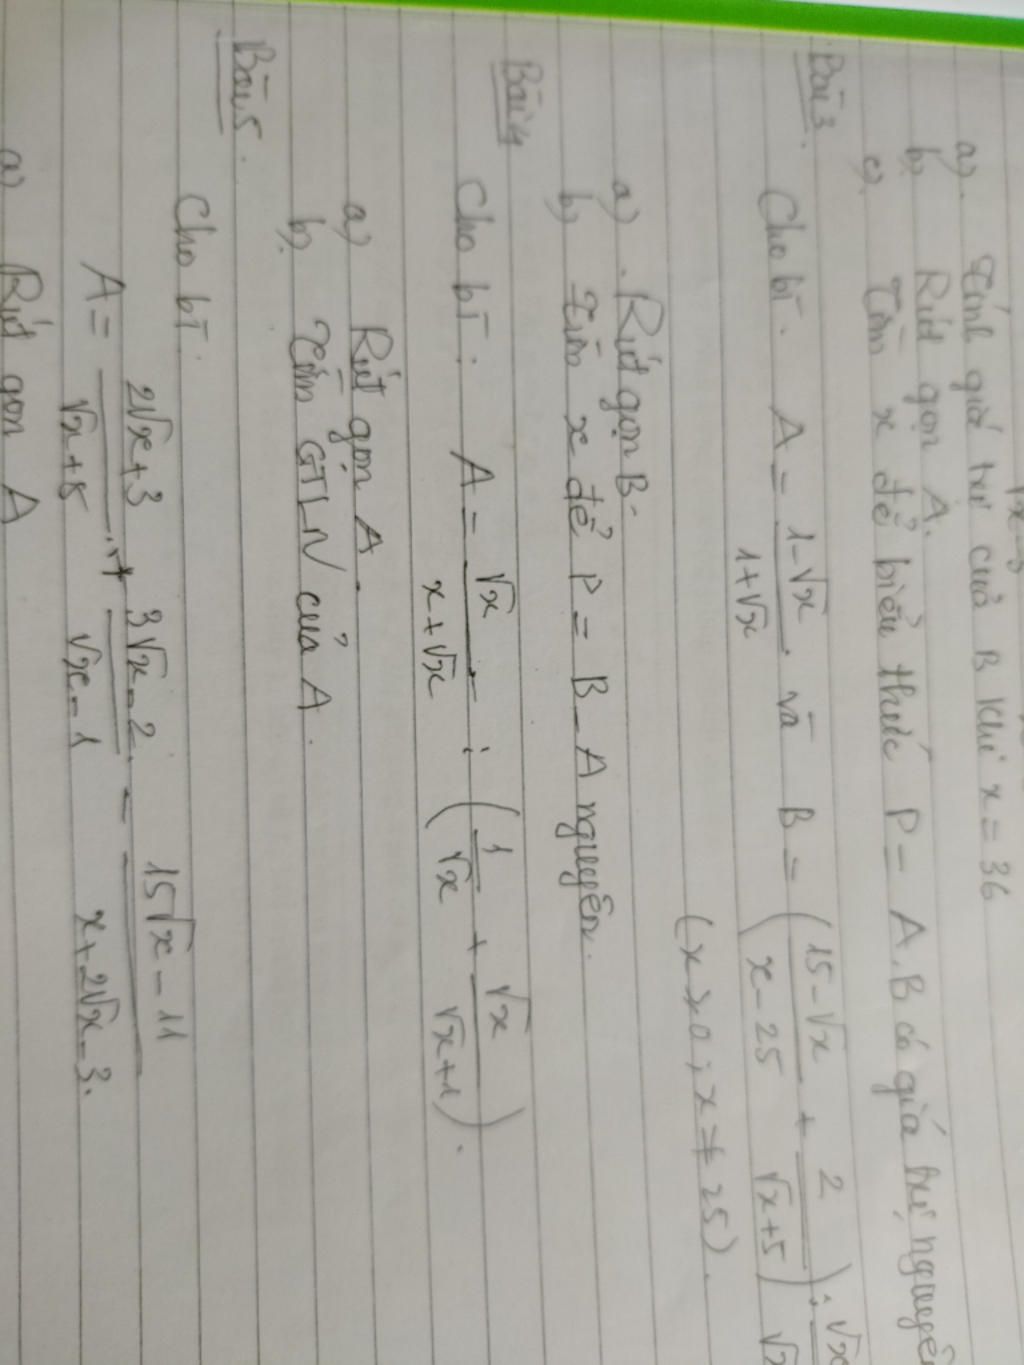 √x-3
a). Tính giá trị của B khi x = 36
b). Rút gọn A.
c). Tìm x để biểu thức P = A.B có giá trị nguyên
Bài 3.
Cho bt. A = 1-√x / 1+√x . và B = ( 15-√x / x-25 + 2 / √x+5 ) : √x
(x ≥ 0 ; x ≠ 25).
a). Rút gọn B.
b) Tìm x để P = B - A nguyên.
Bài 4
Cho bt. A = √x / x+√x : ( 1 / √x + √x / √x+1 ).
a) Rút gọn A.
b). Tìm GTLN của A.
Bài 5.
Cho bt.
A = 2√x+3 / √x+5 + 3√x-2 / √x-1 - 15√x-11 / x+2√x-3.
a) Rút gọn A